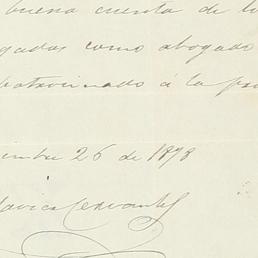 buena cuenta de lo
gadas como abogado
patrocinado á la pa
embre 26 de 1898
Cervantes